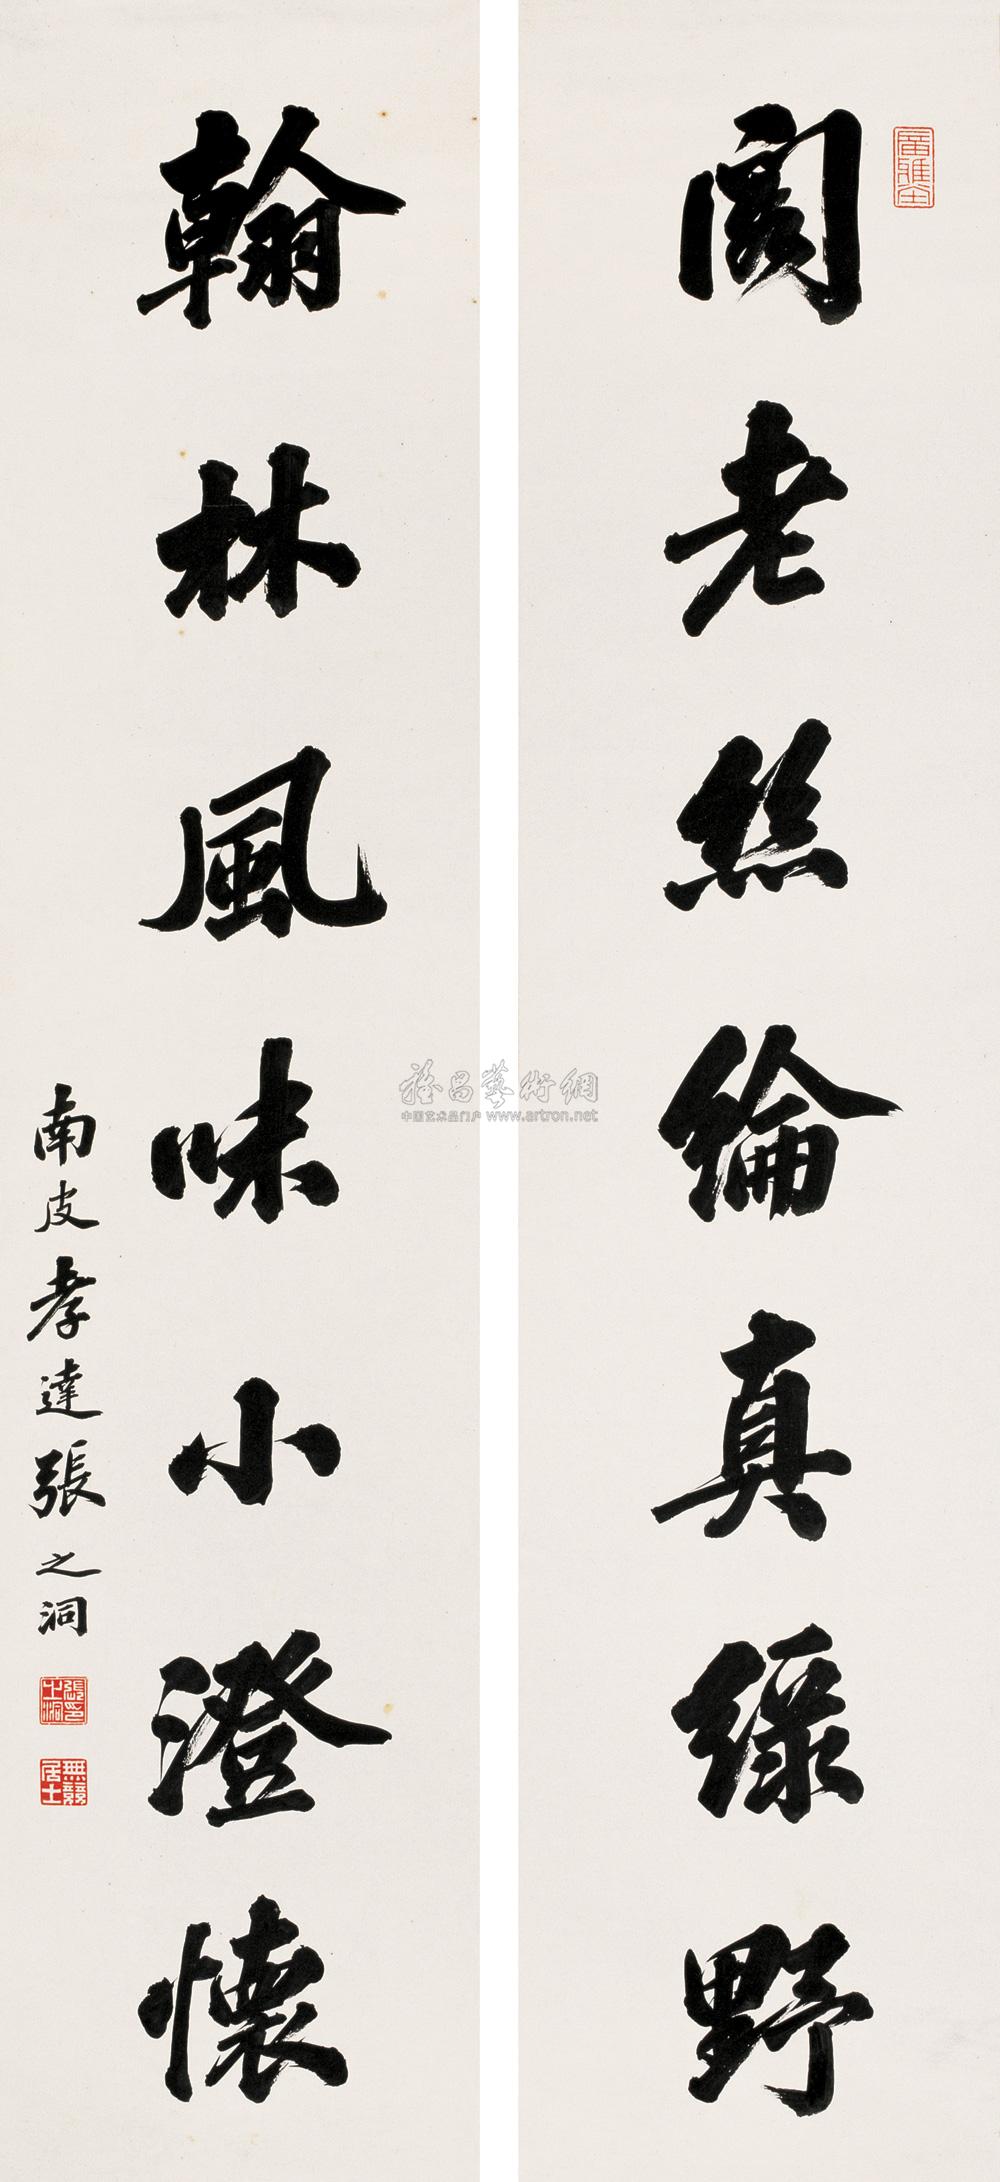 廣雅堂
閣老絲綸真綠野
翰林風味小澄懷
南皮孝達張之洞
張印之洞
無競居士
雅昌藝術網
中国艺术品门户 www.artron.net